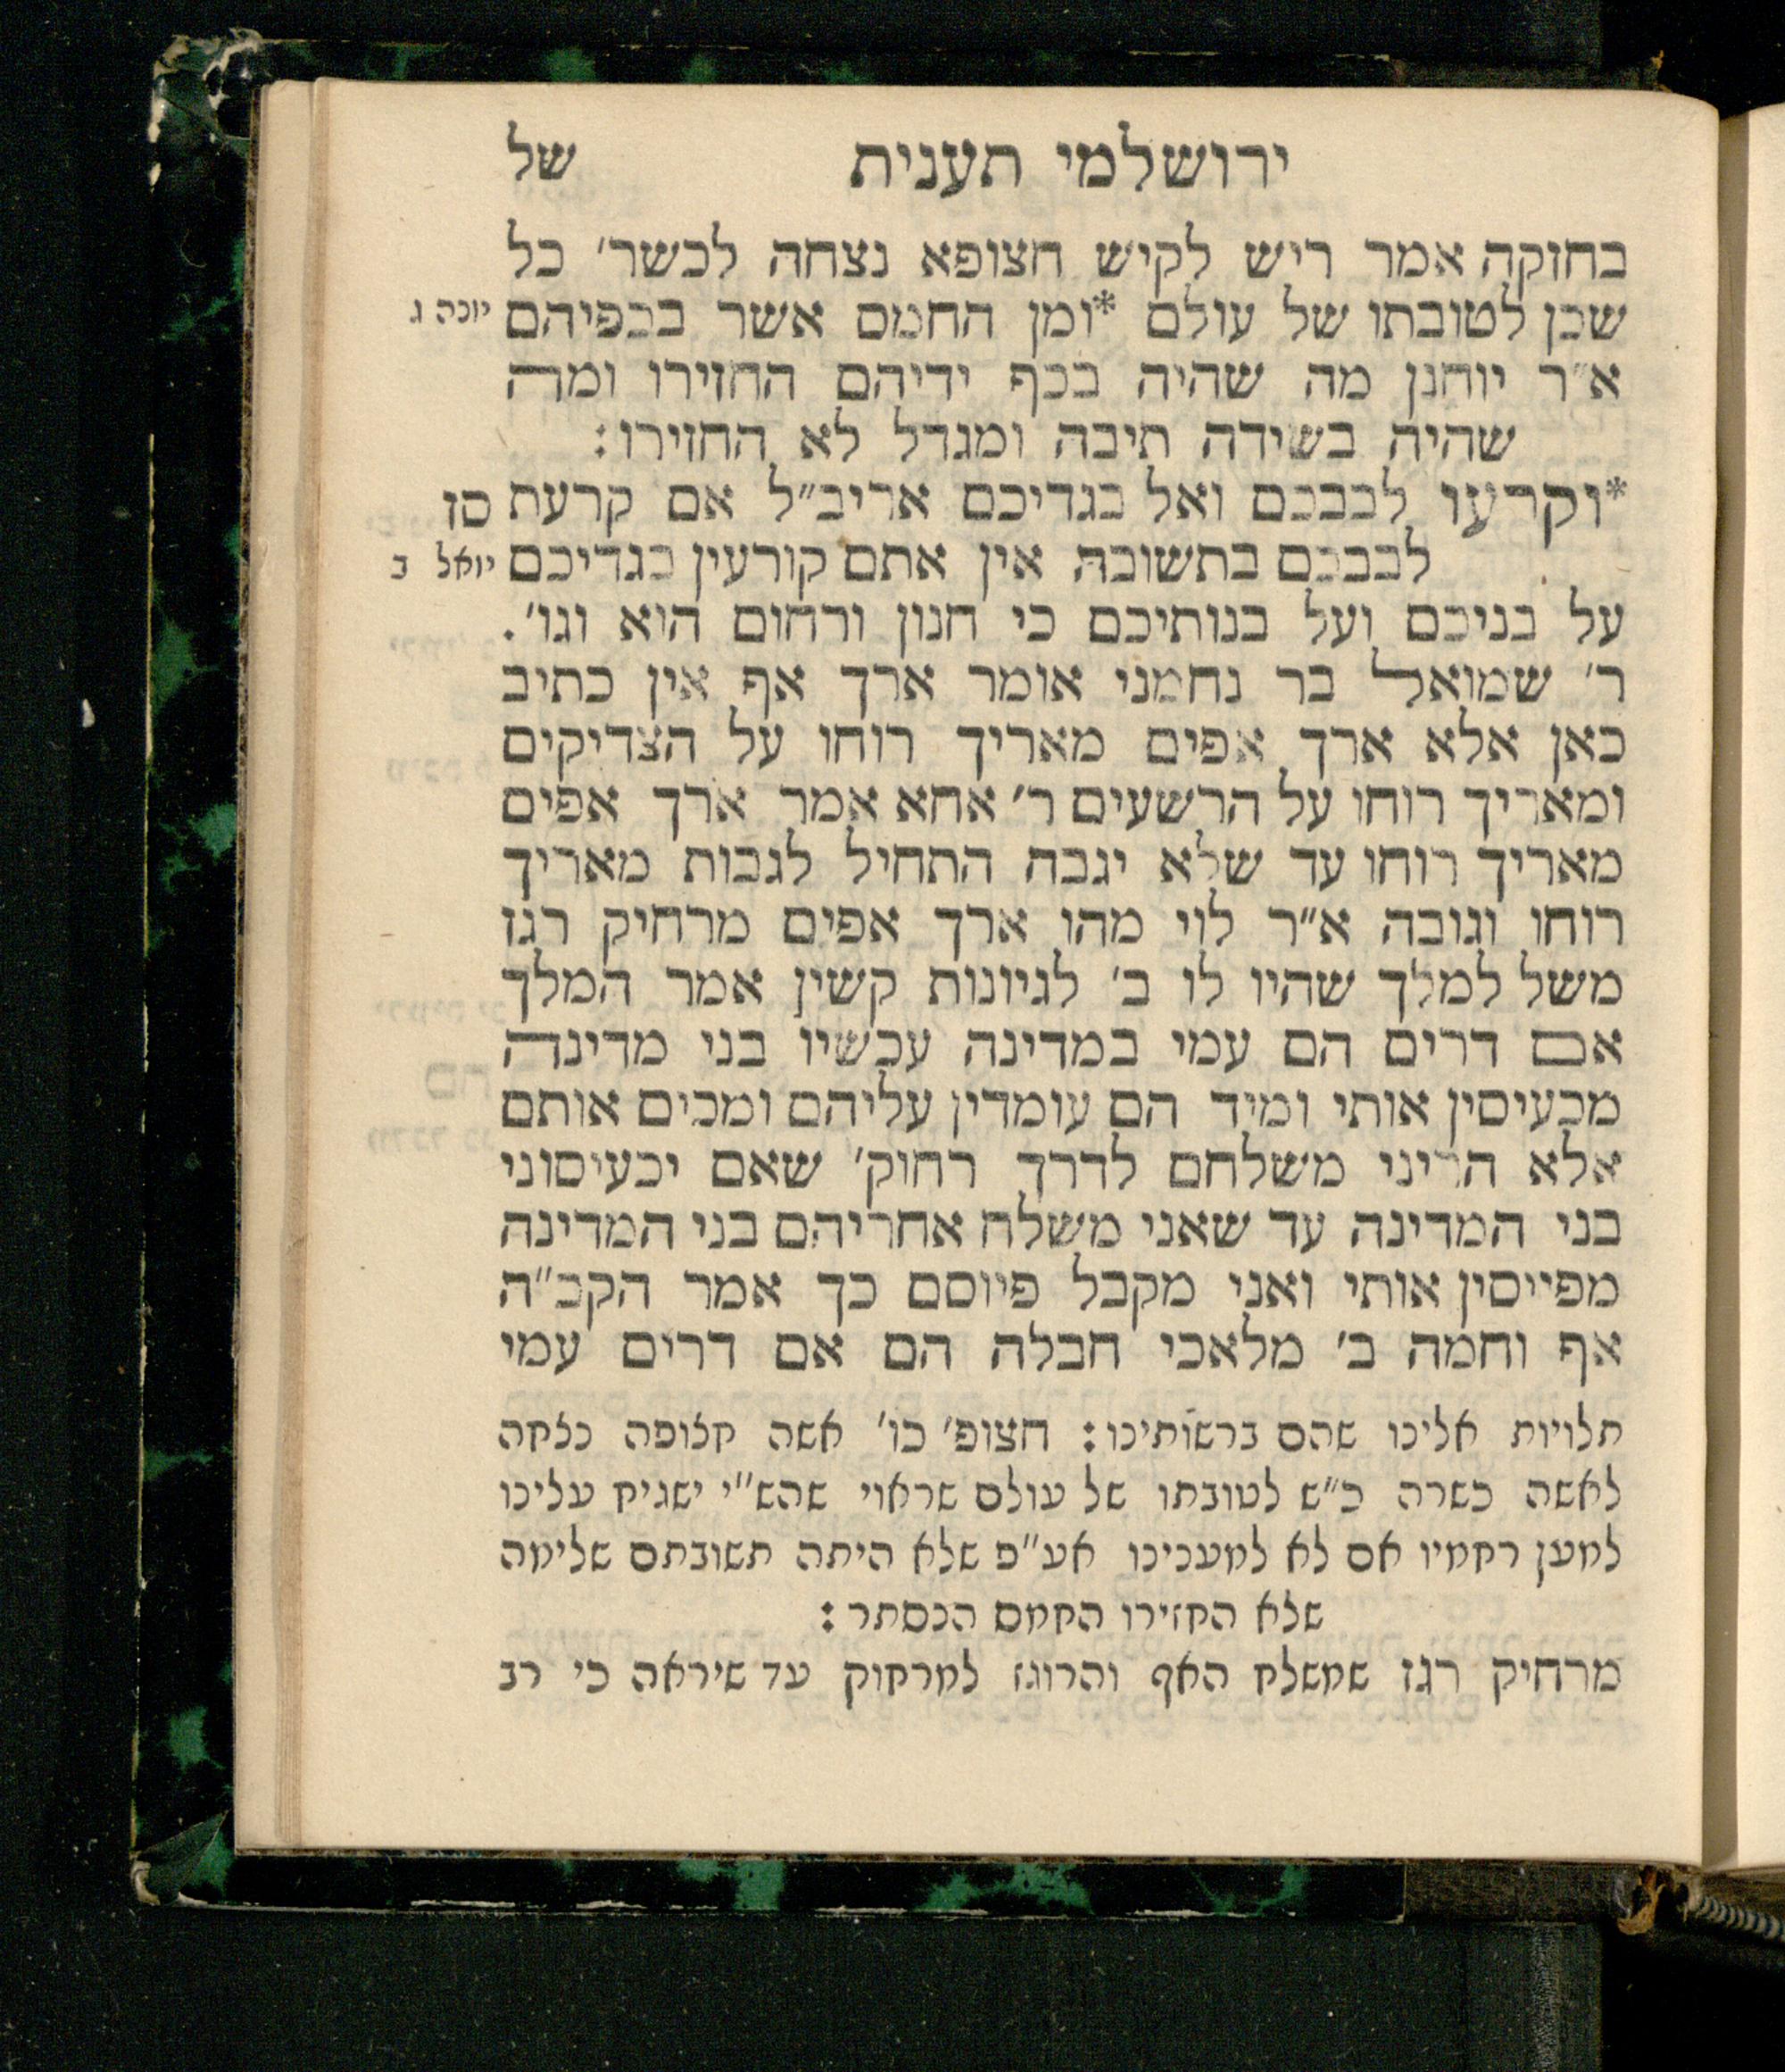 ירושלמי תענית של
בחזקה אמר ריש לקיש חצופא נצחה לכשר׳ כל
שכן לטובתו של עולם *ומן החמס אשר בכפיהם יונה ג
א״ר יוחנן מה שהיה בכף ידיהם החזירו ומה
שהיה בשידה תיבה ומגדל לא החזירו:
*וקרעו לבבכם ואל בגדיכם אריב״ל אם קרעת סז
לבבכם בתשובה אין אתם קורעין בגדיכם יואל ב
על בניכם ועל בנותיכם כי חנון ורחום הוא וגו׳.
ר׳ שמואל בר נחמני אומר ארך אף אין כתיב
כאן אלא ארך אפים מאריך רוחו על הצדיקים
ומאריך רוחו על הרשעים ר׳ אחא אמר ארך אפים
מאריך רוחו עד שלא יגבה התחיל לגבות מאריך
רוחו וגובה א״ר לוי מהו ארך אפים מרחיק רגז
משל למלך שהיו לו ב׳ לגיונות קשין אמר המלך
אם דרים הם עמי במדינה עכשיו בני מדינה
מכעיסין אותי ומיד הם עומדין עליהם ומכים אותם
אלא הריני משלחם לדרך רחוק׳ שאם יכעיסוני
בני המדינה עד שאני משלח אחריהם בני המדינה
מפייסין אותי ואני מקבל פיוסם כך אמר הקב״ה
אף וחמה ב׳ מלאכי חבלה הם אם דרים עמי
תלויות אלינו שהם ברשותינו: חצופ׳ כו׳ אשה חצופה נצחה
לאשה כשרה כ״ש לטובתו של עולם שראוי שהש״י ישגיח עלינו
למען רחמיו אם לא למענינו אע״פ שלא היתה תשובתם שלימה
שלא החזירו החמס הנסתר:
מרחיק רגז שמשלח האף והרוגז למרחוק עד שיראה כי רב